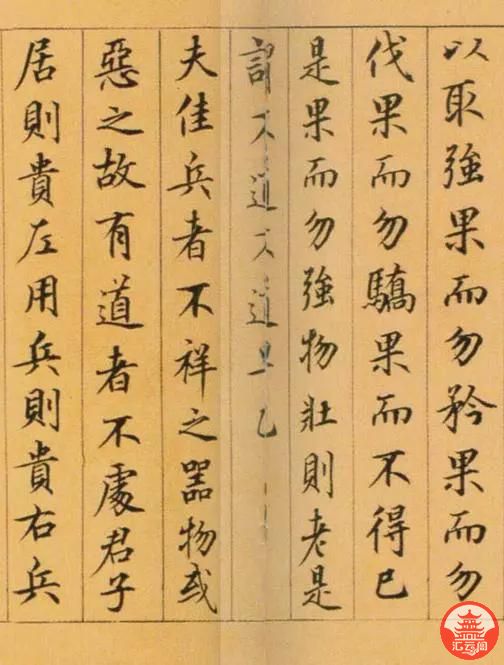 以取強果而勿矜果而勿
伐果而勿驕果而不得已
是果而勿強物壯則老是
謂不道不道早已
夫佳兵者不祥之器物或
惡之故有道者不處君子
居則貴左用兵則貴右兵
汇云阁